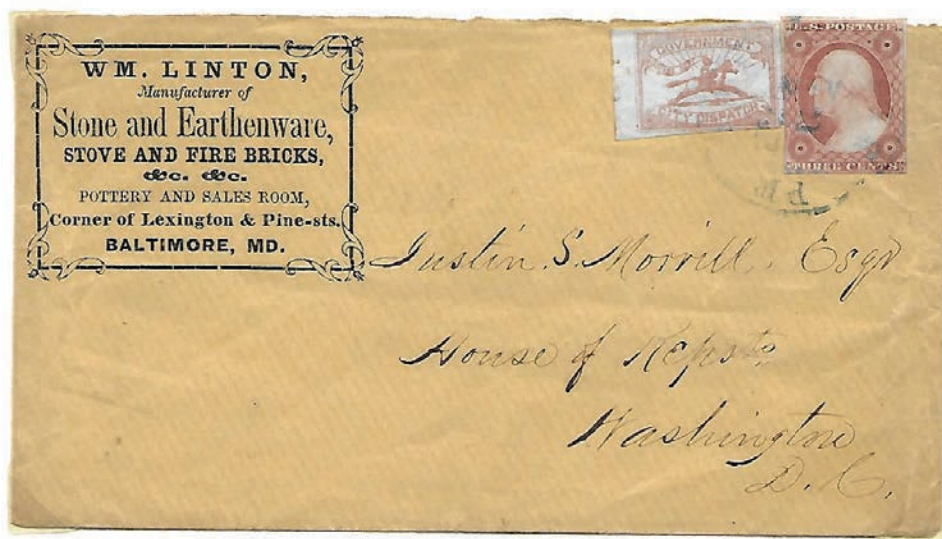 WM. LINTON,
Manufacturer of
Stone and Earthenware,
STOVE AND FIRE BRICKS,
&c. &c.
POTTERY AND SALES ROOM,
Corner of Lexington & Pine-sts.
BALTIMORE, MD.
GOVERNMENT
CITY DISPATCH
U.S. POSTAGE
THREE CENTS
Justin. S. Morrill. Esqr
House of Repsts
Washington
D.C.